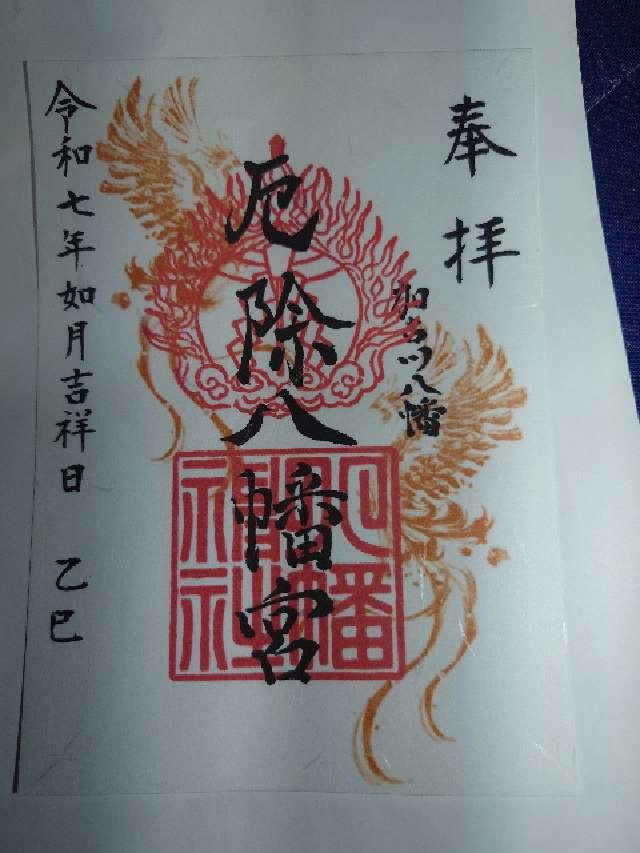 奉拝
加古川八幡
厄除八幡宮
八幡神社
令和七年如月吉祥日 乙巳